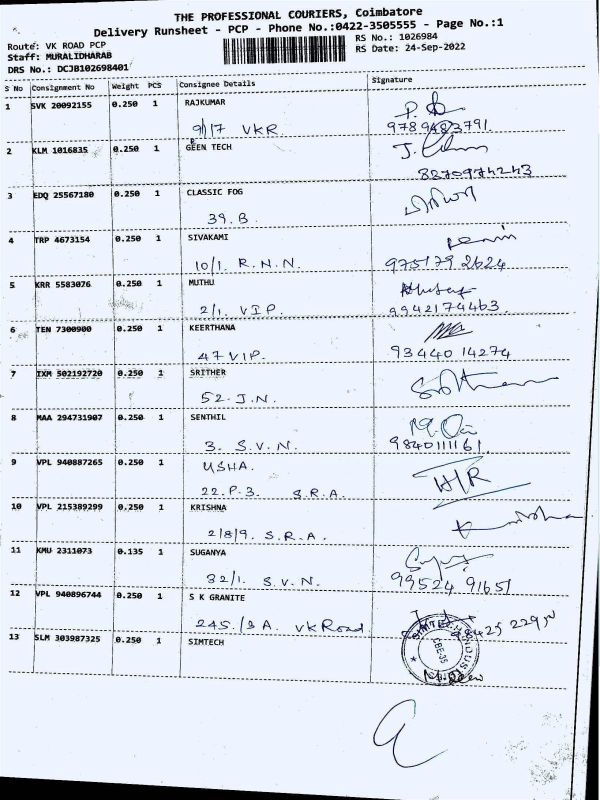 THE PROFESSIONAL COURIERS, Coimbatore
Delivery Runsheet - PCP - Phone No.:0422-3505555 - Page No.:1
Route: VK ROAD PCP
RS No.: 1026984
Staff: MURALIDHARAB
RS Date: 24-Sep-2022
DRS No.: DCJB102698401
S No Consignment No Weight PCS Consignee Details Signature
1 SVK 20092155 0.250 1 RAJKUMAR
9/17 VKR.
2 KLM 1016835 0.250 1 GEEN TECH
3 EDQ 25567180 0.250 1 CLASSIC FOG
39. B.
4 TRP 4673154 0.250 1 SIVAKAMI
10/1. R.N.N. 975179 2624
5 KRR 5583076 0.250 1 MUTHU
2/1. VIP. 9942174463.
6 TEN 7300900 0.250 1 KEERTHANA
47 VIP. 93440 14274
7 IXM 502192720 0.250 1 SRITHER
52. J.N.
8 MAA 294731907 0.250 1 SENTHIL
3. S.V.N. 9840111161
9 VPL 940887265 0.250 1 USHA.
22.P.3. S.R.A. H/R
10 VPL 215389299 0.250 1 KRISHNA
2/8/9. S.R.A.
11 KMU 2311073 0.135 1 SUGANYA
32/1. S.V.N. 99524 91651
12 VPL 940896744 0.250 1 S K GRANITE
245./2A. VK Road
13 SLM 303987325 0.250 1 SIMTECH
CBE-35